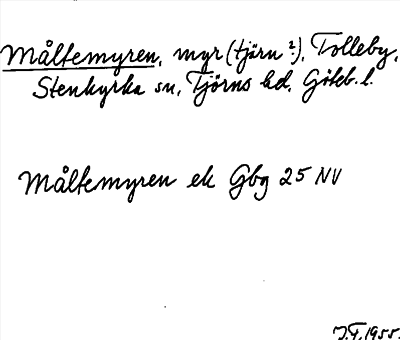 Måltemyren, myr (tjärn ?), Tolleby,
Stenkyrka sn, Tjörns hd, Göteb. l.
Måltemyren ek Gbg 25 NV
J.F. 1955.